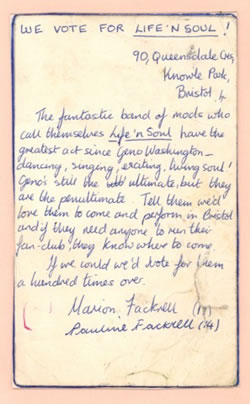 WE VOTE FOR LIFE'N SOUL !
90, Queensdale Cres,
Knowle Park,
Bristol 4
The fantastic band of mods who
call themselves Life 'n Soul have the
greatest act since Geno Washington –
dancing, singing, exciting, living soul!
Geno's still the ultimate, but they
are the penultimate. Tell them we'd
love them to come and perform in Bristol
and if they need anyone to run their
fan-club, they know where to come.
If we could we'd vote for them
a hundred times over.
Marion Fackrell
Pauline Fackrell (14)